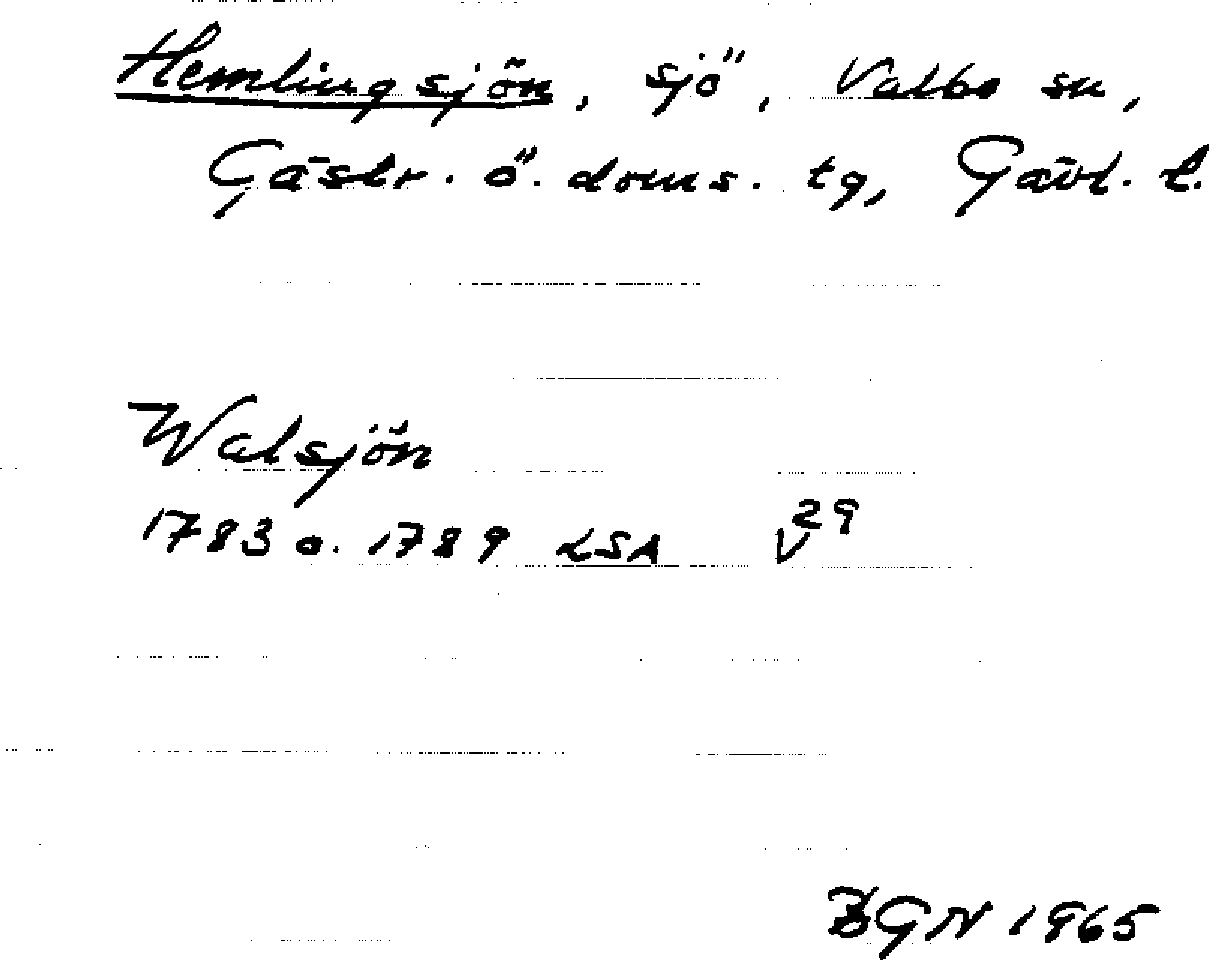 Hemlingsjön, sjö, Valbo sn,
Gästr. ö. doms. tg, Gävl. l.
Walsjön
1783 o. 1789 LSA V 29
BGN 1965